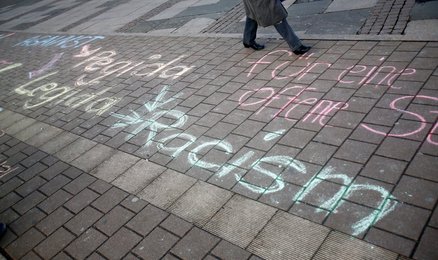 Pegida
Legida
Racism
Für eine
offene